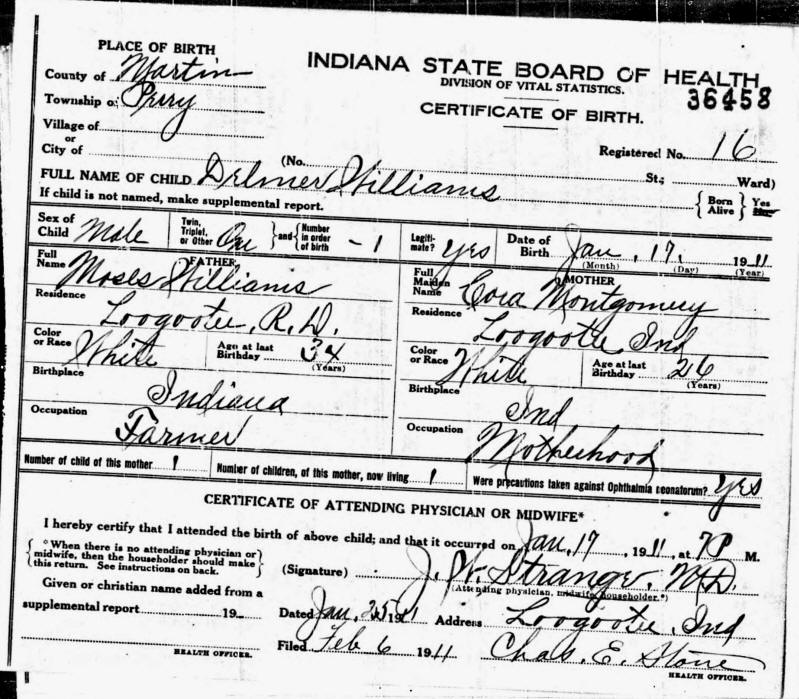 PLACE OF BIRTH
INDIANA STATE BOARD OF HEALTH
County of Martin
DIVISION OF VITAL STATISTICS.
36458
Township of Perry
CERTIFICATE OF BIRTH.
Village of
or
Registered No. 16
City of
(No. St.; Ward)
FULL NAME OF CHILD Delmer Williams
If child is not named, make supplemental report.
{ Born Alive } Yes No
Sex of Child Male
Twin, Triplet, or Other One } and { Number in order of birth - 1
Legitimate? Yes
Date of Birth Jan. 17. 1911
(Month) (Day) (Year)
FATHER
Full Name Moses Williams
Residence Loogootee, R.D.
Color or Race White
Age at last Birthday 34
(Years)
Birthplace Indiana
Occupation Farmer
MOTHER
Full Maiden Name Cora Montgomery
Residence Loogootee Ind
Color or Race White
Age at last Birthday 26
(Years)
Birthplace Ind
Occupation Motherhood
Number of child of this mother 1
Number of children, of this mother, now living 1
Were precautions taken against Ophthalmia neonatorum? Yes
CERTIFICATE OF ATTENDING PHYSICIAN OR MIDWIFE*
I hereby certify that I attended the birth of above child; and that it occurred on Jan. 17, 1911, at 7 P M.
{ * When there is no attending physician or midwife, then the householder should make this return. See instructions on back. }
(Signature) J. W. Strange, M.D.
(Attending physician, midwife, householder.*)
Given or christian name added from a
supplemental report 19
Dated Jan. 25 1911 Address Loogootee, Ind
Filed Feb 6 1911 Chas. E. Stone
HEALTH OFFICER.
HEALTH OFFICER.